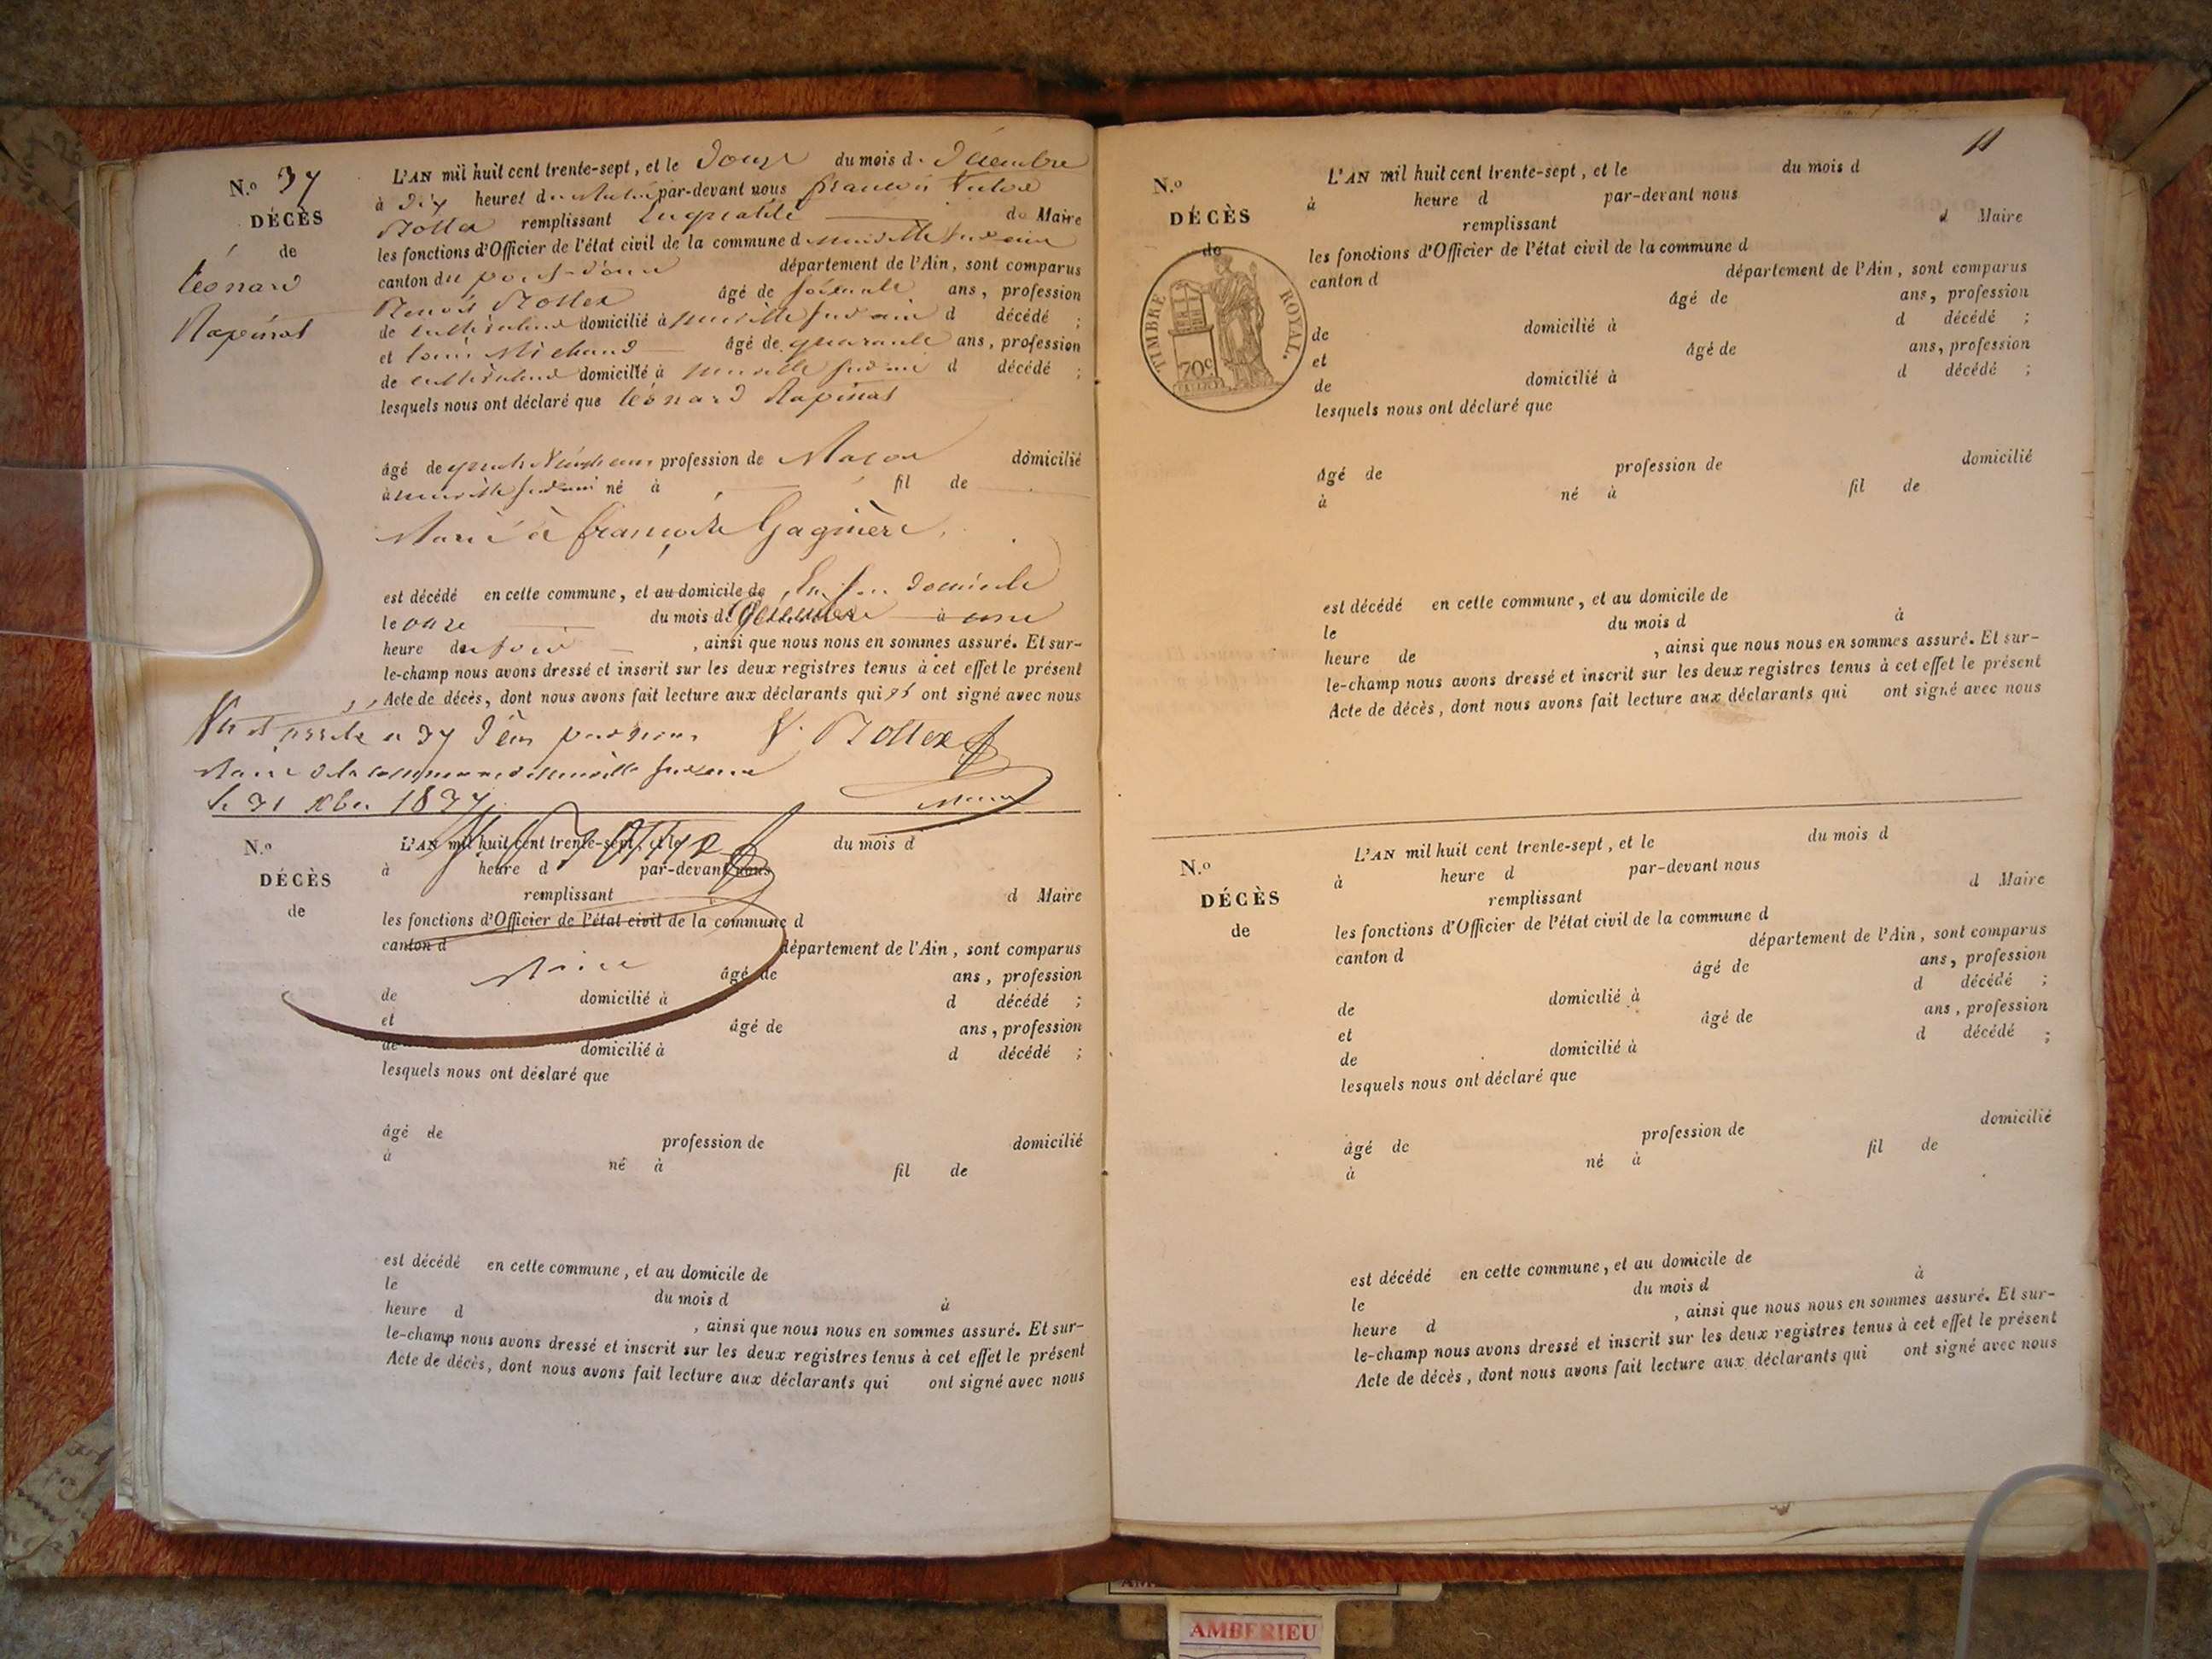 N.º 37
DÉCÈS
de
Léonard
Rapinat
L'AN mil huit cent trente-sept, et le Douze du mois de Décembre
à Dix heures du Matin par-devant nous François Victor
Bottex remplissant En qualité de Maire
les fonctions d'Officier de l'état civil de la commune de neuville sur ain
canton du pont-d'ain département de l'Ain, sont comparus
Benoit Bottex âgé de soixante ans, profession
de cultivateur domicilié à neuville sur ain d décédé ;
et Louis Michaud âgé de quarante ans, profession
de cultivateur domicilié à neuville sur ain d décédé ;
lesquels nous ont déclaré que Léonard Rapinat
âgé de profession de Maçon domicilié
à neuville sur ain né à fil de
Marié à françoise Gagnière
est décédé en cette commune, et au domicile de En son domicile
le onze du mois de Décembre à une
heure du soir , ainsi que nous nous en sommes assuré. Et sur-
le-champ nous avons dressé et inscrit sur les deux registres tenus à cet effet le présent
Acte de décès, dont nous avons fait lecture aux déclarants qui ont signé avec nous
Vu et arrêté à 37 Décès par nous V. Bottex
Maire de la commune de neuville sur ain Maire
le 31 Xbre 1837
V. Bottex
Maire
N.º
DÉCÈS
de
L'AN mil huit cent trente-sept, et le du mois d
à heure d par-devant nous
remplissant d Maire
les fonctions d'Officier de l'état civil de la commune d
canton d département de l'Ain, sont comparus
âgé de ans, profession
de domicilié à d décédé ;
et âgé de ans, profession
de domicilié à d décédé ;
lesquels nous ont déclaré que
âgé de profession de domicilié
à né à fil de
est décédé en cette commune, et au domicile de
le du mois d à
heure d , ainsi que nous nous en sommes assuré. Et sur-
le-champ nous avons dressé et inscrit sur les deux registres tenus à cet effet le présent
Acte de décès, dont nous avons fait lecture aux déclarants qui ont signé avec nous
11
N.º
DÉCÈS
de
TIMBRE ROYAL.
70c
L'AN mil huit cent trente-sept, et le du mois d
à heure d par-devant nous
remplissant d Maire
les fonctions d'Officier de l'état civil de la commune d
canton d département de l'Ain, sont comparus
âgé de ans, profession
de domicilié à d décédé ;
et âgé de ans, profession
de domicilié à d décédé ;
lesquels nous ont déclaré que
âgé de profession de domicilié
à né à fil de
est décédé en cette commune, et au domicile de
le du mois d à
heure de , ainsi que nous nous en sommes assuré. Et sur-
le-champ nous avons dressé et inscrit sur les deux registres tenus à cet effet le présent
Acte de décès, dont nous avons fait lecture aux déclarants qui ont signé avec nous
N.º
DÉCÈS
de
L'AN mil huit cent trente-sept, et le du mois d
à heure d par-devant nous
remplissant d Maire
les fonctions d'Officier de l'état civil de la commune d
canton d département de l'Ain, sont comparus
âgé de ans, profession
de domicilié à d décédé ;
et âgé de ans, profession
de domicilié à d décédé ;
lesquels nous ont déclaré que
âgé de profession de domicilié
à né à fil de
est décédé en cette commune, et au domicile de
le du mois d à
heure d , ainsi que nous nous en sommes assuré. Et sur-
le-champ nous avons dressé et inscrit sur les deux registres tenus à cet effet le présent
Acte de décès, dont nous avons fait lecture aux déclarants qui ont signé avec nous
AMBERIEU